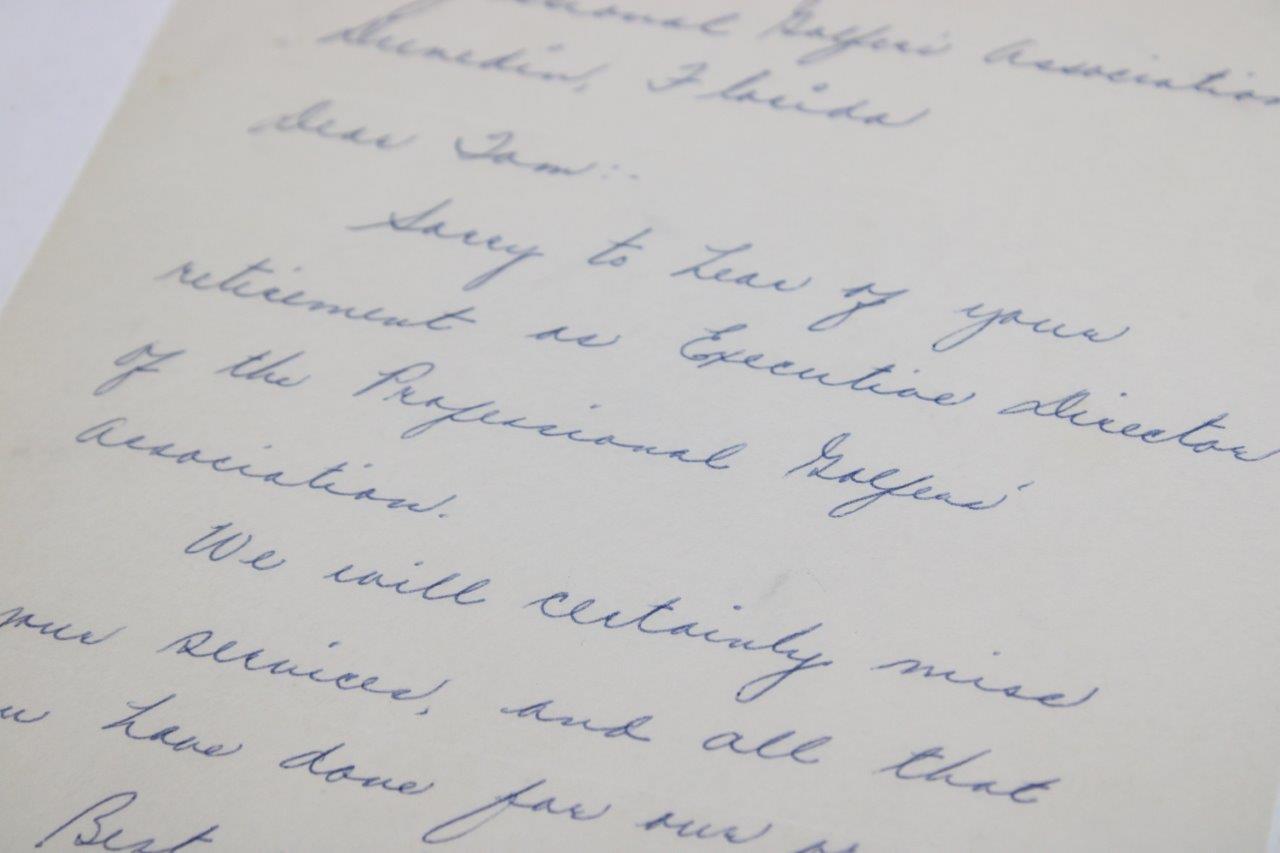 Golfers' Association
Dunedin, Florida
Dear Tom:-
Sorry to hear of your
retirement as Executive Director
of the Professional Golfers'
Association.
We will certainly miss
your services, and all that
have done for our
Best